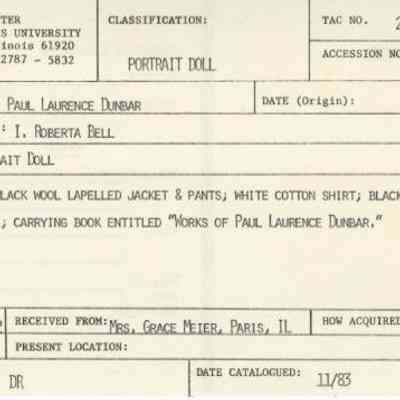 TER CLASSIFICATION: TAC NO. 2
S UNIVERSITY
inois 61920 ACCESSION NO
2787 - 5832 PORTRAIT DOLL
PAUL LAURENCE DUNBAR DATE (Origin):
: I. ROBERTA BELL
AIT DOLL
LACK WOOL LAPELLED JACKET & PANTS; WHITE COTTON SHIRT; BLACK
; CARRYING BOOK ENTITLED "WORKS OF PAUL LAURENCE DUNBAR."
RECEIVED FROM: MRS. GRACE MEIER, PARIS, IL HOW ACQUIRED
PRESENT LOCATION:
DR DATE CATALOGUED: 11/83